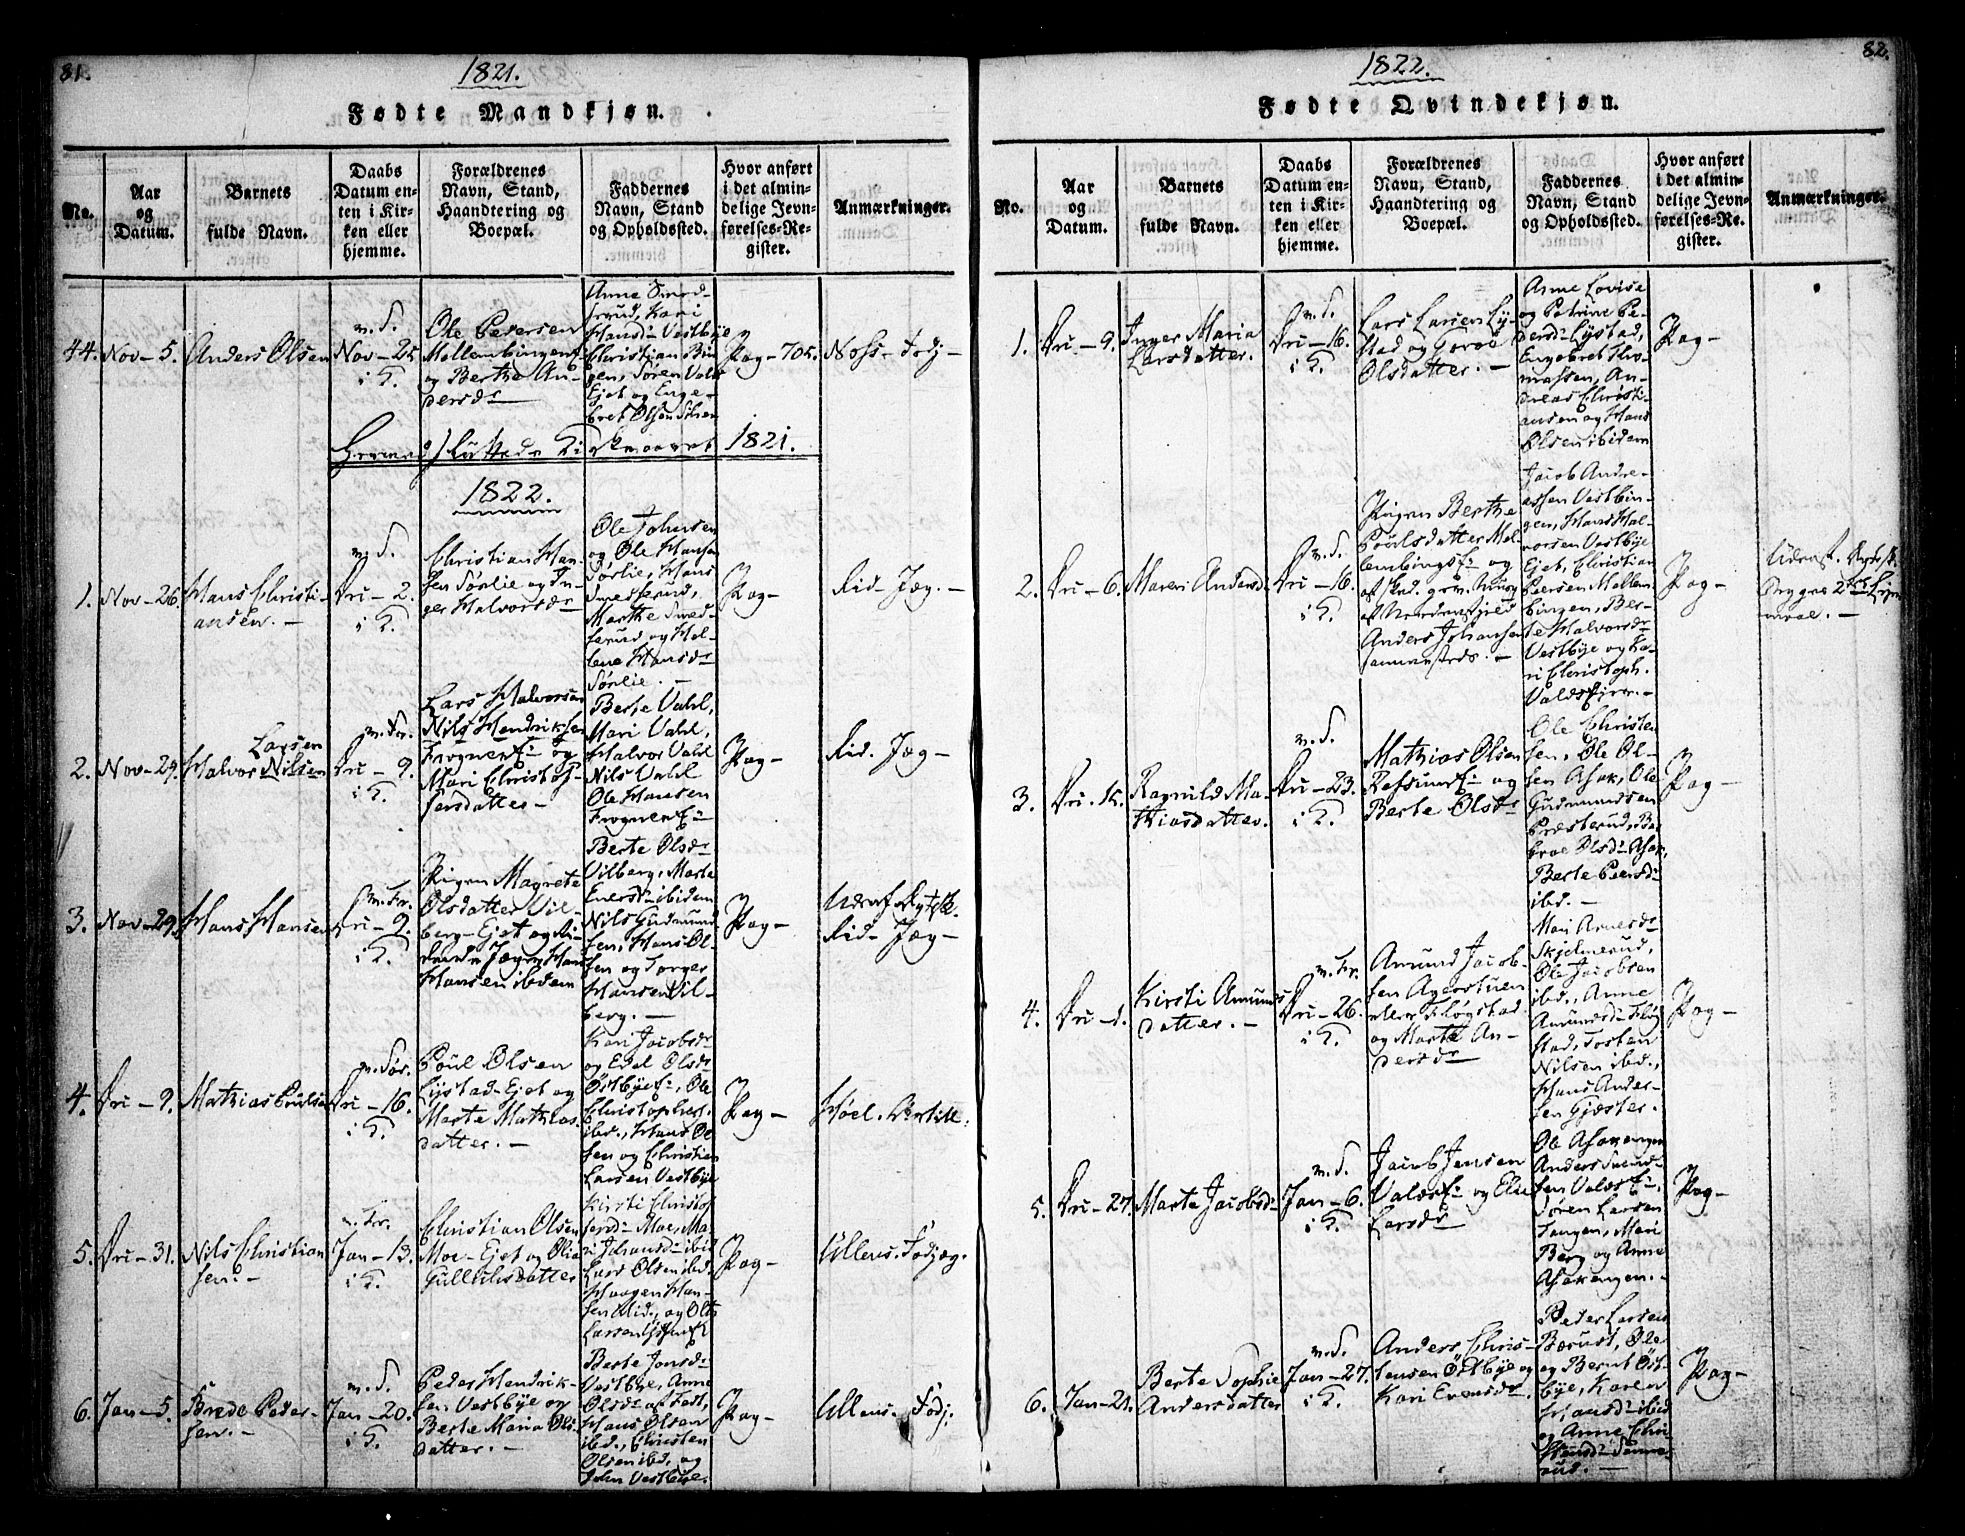 81.
1821.
Fødte Mandkjøn.
No.
Aar
og
Datum.
Barnets
fulde Navn.
Daabs
Datum en-
ten i Kir-
ken eller
hjemme.
Forældrenes
Navn, Stand,
Haandtering og
Boepæl.
Faddernes
Navn, Stand
og Opholdssted.
Hvor anført
i det almin-
delige Jevn-
førelses-Re-
gister.
Anmærkninger.
44.
Nov – 5.
Anders Olsen
Nov – 25.
i K.
Ole Pedersen
Mellembingen
og Berthe An-
dersdr
Hans dr Vestbye
Christian Bin-
gen, Søren Vald
Ejet og Enge-
bret Olsen
Pag – 705.
1821.
1822.
1.
Nov – 26.
Hans Christi-
ansen. –
Dri – 2.
i K.
Christian Han-
sen Sørlie og In-
ger Halvorsdr
Ole Johnsen
og Ole Hansen
Sørlie, Hans
Smedsrud,
Marthe Smed-
serud og Hel-
lene Hansdr
Sørlie. –
Pag –
Rid. Jæg. –
2.
Nov – 29.
Larsen
Halvor Nilsen
Dri – 9.
i K.
Lars Halvorsen
Nils Hendriksen
Frogner og
Mari Christof-
fersdatter –
Berte Vahl,
Mari Vahl,
Halvor Vahl
Nils Vahl
Ole Hansen
Frogner
Pag –
Rid. Jæg –
3.
Nov – 29.
Hans Hansen
Dri – 9.
i K.
Pigen Magrete
Olsdatter Vil-
berg – Ejet og Ri-
Hansen ibidem
Berte Olsdr
Vilberg, Marte
ibidem
Nils Gudmund
sen, Hans Ol-
sen og Torger
Hansen Vil-
berg. –
Pag –
Rid. Jæg –
4.
Dri – 9.
Mathias Poulsen
Dri – 16.
i K.
Poul Olsen
Lystad – Ejet og
Marte Mathias-
datter. –
Kari Jacobsdr
og Edel Olsdr
Østbye, Ole
Christophers.
ibd., Hans Ol
sen og Christian
Larsen Vestbye
Pag –
5.
Dri – 31.
Nils Christian
sen. –
Jan – 13.
i K.
Christian Olsen
Moe – Ejet og Olia
Gulliksdatter
Kirsti Christof
fersdr Moe, Ma-
ri Johansdr ibid
Lars Olsen ibd.
Haagen Han-
sen ibid., og Ole
Larsen
Pag –
Ullens. Fodjæg.
6.
Jan – 5.
Brede Peder-
sen. –
m. S.
Jan – 20.
i K.
Peder Hendrik-
sen Vestbye og
Berte Maria Ols-
datter. –
Berte Jonsdr
Vestbye, Anne
Olsdr
Hans Olsen
ibd., Christen
Olsen ibd., og
John Vestbye.
Pag –
Ullens. Fodj.
82.
1822.
Fødte Qvindekjøn.
No.
Aar
og
Datum.
Barnets
fulde Navn.
Daabs
Datum en-
ten i Kir-
ken eller
hjemme.
Forældrenes
Navn, Stand,
Haandtering og
Boepæl.
Faddernes
Navn, Stand
og Opholdssted.
Hvor anført
i det almin-
delige Jevn-
førelses-Re-
gister.
Anmærkninger.
1.
Dri – 9.
Inger Maria
Larsdatter.
Dri – 16.
i K.
Lars Larsen Ly-
stad og
Olsdatter. –
Anne Lovise
og Petrine Pe-
dersdr Lystad,
Engebret Tho-
massen, An-
dreas Christi-
ansen og Hans
Olsen ibidem
Pag –
2.
Dri – 6.
Maren Andersdr
m. S.
Dri – 16.
i K.
Pigen Berthe
Poulsdatter Mel-
og
Anders Johansen
Jacob Andre-
assen Vestbin-
gen, Hans Hal-
vorsen Vestbye
Ejet, Christian
Peersen Mellem
bingen, Ber-
te Halvorsdr
Vestbye og Ka-
ri Christoph.
Pag –
3.
Dri – 15.
Ragnild Ma-
thiasdatter.
m. S.
Dri – 23.
i K.
Mathias Olsen
og
Berte Olsdr
Ole Christen
sen, Ole Ol-
sen Asak, Ole
Gudmundsen
Præsterud, Bar-
broe Olsdr Asak,
Berte Peersdr
ibd. –
Pag –
4.
Kirsti Amunds
datter. –
Dri – 26.
i K.
Amund Jacob-
sen Agerstuen
eller Fløgstad
og Marte An-
dersdr
Mari Arnesdr
Skjelmerud,
Ole Jacobsen
ibd., Anne
Amundsdr Fløg
stad, Tosten
Nilsen ibd.,
Hans Ander-
sen Gjæster.
Pag –
5.
Dri – 27.
Marte Jacobsdr
m. S.
Jan – 6.
i K.
Jacob Jensen
og
Larsdr
Ole Asakengen
Anders
sen
Søren Larsen
Tangen, Mari
Berg og Anne
Asakengen. –
Pag –
6.
Jan – 21.
Berte Sophie
Andersdatter
m. S.
Jan – 27.
i K.
Anders Chris-
tensen Østbye og
Kari
Peder Larsen
Bærust, Ole
og Bernt Øst-
bye, Karen
Hansdr ibid
og Anne Chri-
Pag –